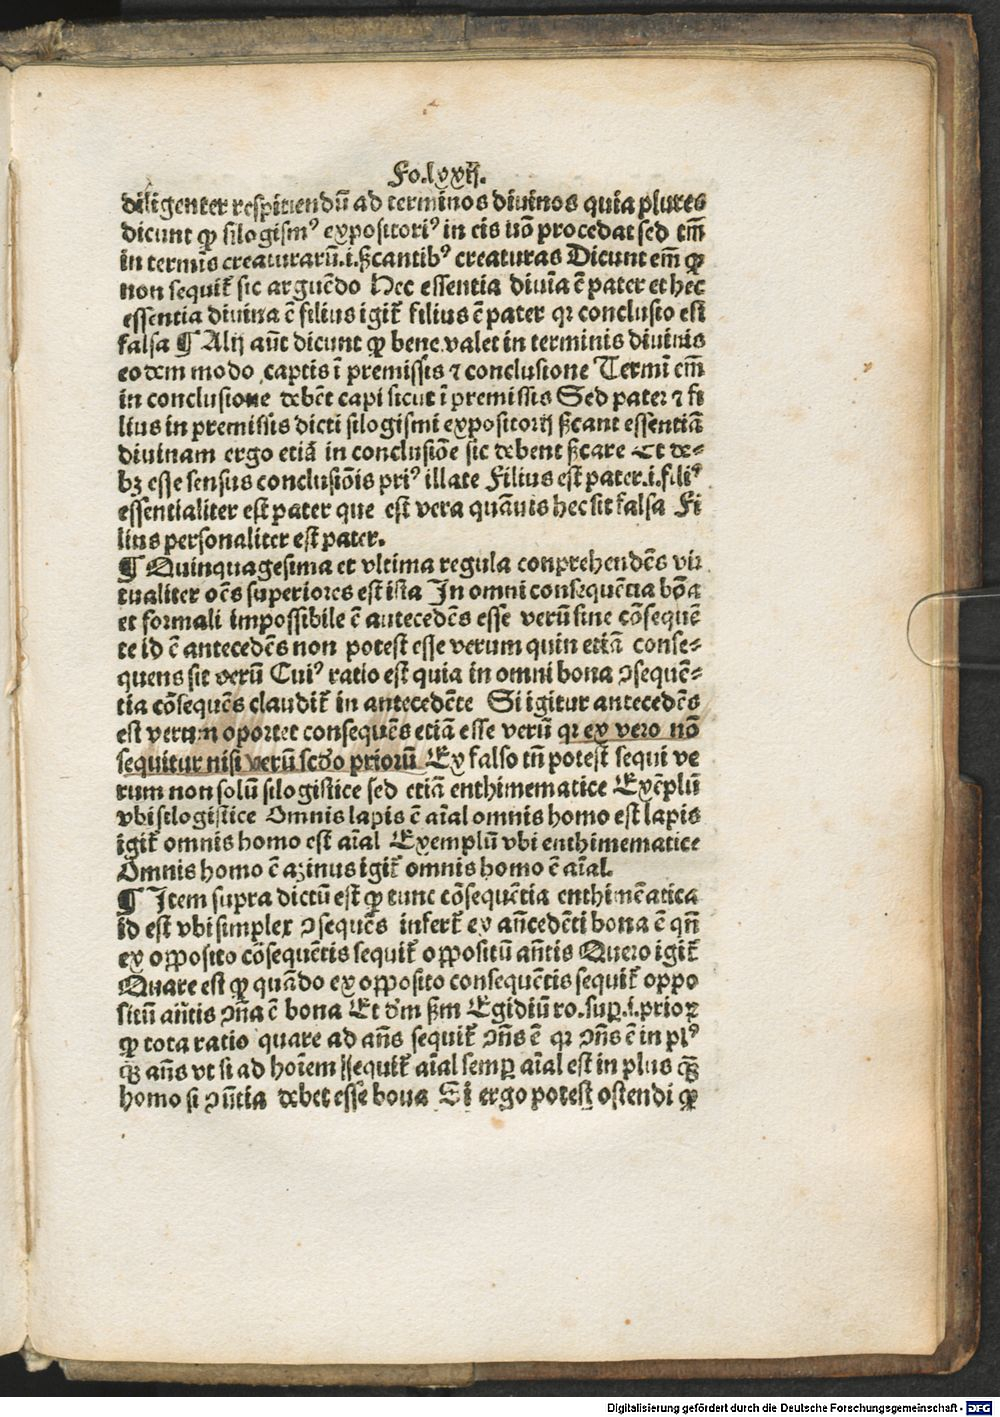 Fo.lxxij.
diligenter respiciendū ad terminos diuinos quia plures
dicunt ꝙ silogismꝰ expositoriꝰ in eis nō procedat sed tm̄
in termīs creaturarū.i.ſꝫcantibꝰ creaturas Dicunt em̄ ꝙ
non sequit᷑ sic arguēdo Hec essentia diuīa ē pater et hec
essentia diuina ē filius igit᷑ filius ē pater qꝛ conclusio est
falsa ¶ Alij aūt dicunt ꝙ bene valet in terminis diuinis
eodem modo captis ī premissis ⁊ conclusione Termī em̄
in conclusione debēt capi sicut ī premissis Sed pater ⁊ fi
lius in premissis dicti silogismi expositorij ſꝫcant essentiā
diuinam ergo etiā in conclusiōe sic debent ſꝫcare Et de⸗
bꝫ esse sensus conclusiōis priꝰ illate Filius est pater.i.filiꝰ
essentialiter est pater que est vera quāuis hec sit falsa Fi
lius personaliter est pater.
¶ Quinquagesima et vltima regula conprehendēs vir
tualiter oēs superiores est ista In omni consequētia bōa
et formali impossibile ē antecedēs esse verū sine cōsequē
te id ē antecedēs non potest esse verum quin etiā conse⸗
quens sit verū Cuiꝰ ratio est quia in omni bona ꝯsequē⸗
tia cōsequēs claudit᷑ in antecedēte Si igitur antecedēs
est verum oportet consequēs etiā esse verū qꝛ ex vero nō
sequitur nisi verū scd̄o priorū Ex falso tn̄ potest sequi ve
rum non solū silogistice sed etiā enthimematice Exēplū
vbi silogistice Omnis lapis ē aīal omnis homo est lapis
igit᷑ omnis homo est aīal Exemplū vbi enthimematice
Omnis homo ē azinus igit᷑ omnis homo ē aīal.
¶ Item supra dictū est ꝙ tunc cōsequētia enthimēatica
id est vbi simplex ꝯsequēs infert᷑ ex an̄cedēti bona ē qn̄
ex opposito cōsequētis sequit᷑ oppositū an̄tis Quero igit᷑
Quare est ꝙ quādo ex opposito consequētis sequit᷑ oppo
sitū an̄tis ꝯn̄a ē bona Et dōm ſꝫm Egidiū ro.suꝑ.i.prioꝝ
ꝙ tota ratio quare ad an̄s sequit᷑ ꝯn̄s ē qꝛ ꝯn̄s ē in plꝰ
qꝫ̄ an̄s vt si ad hoīem sequit᷑ aīal semꝑ aīal est in plus qꝫ̄
homo si ꝯn̄tia debet esse bona Si ergo potest ostendi ꝙ
Digitalisierung gefördert durch die Deutsche Forschungsgemeinschaft - DFG